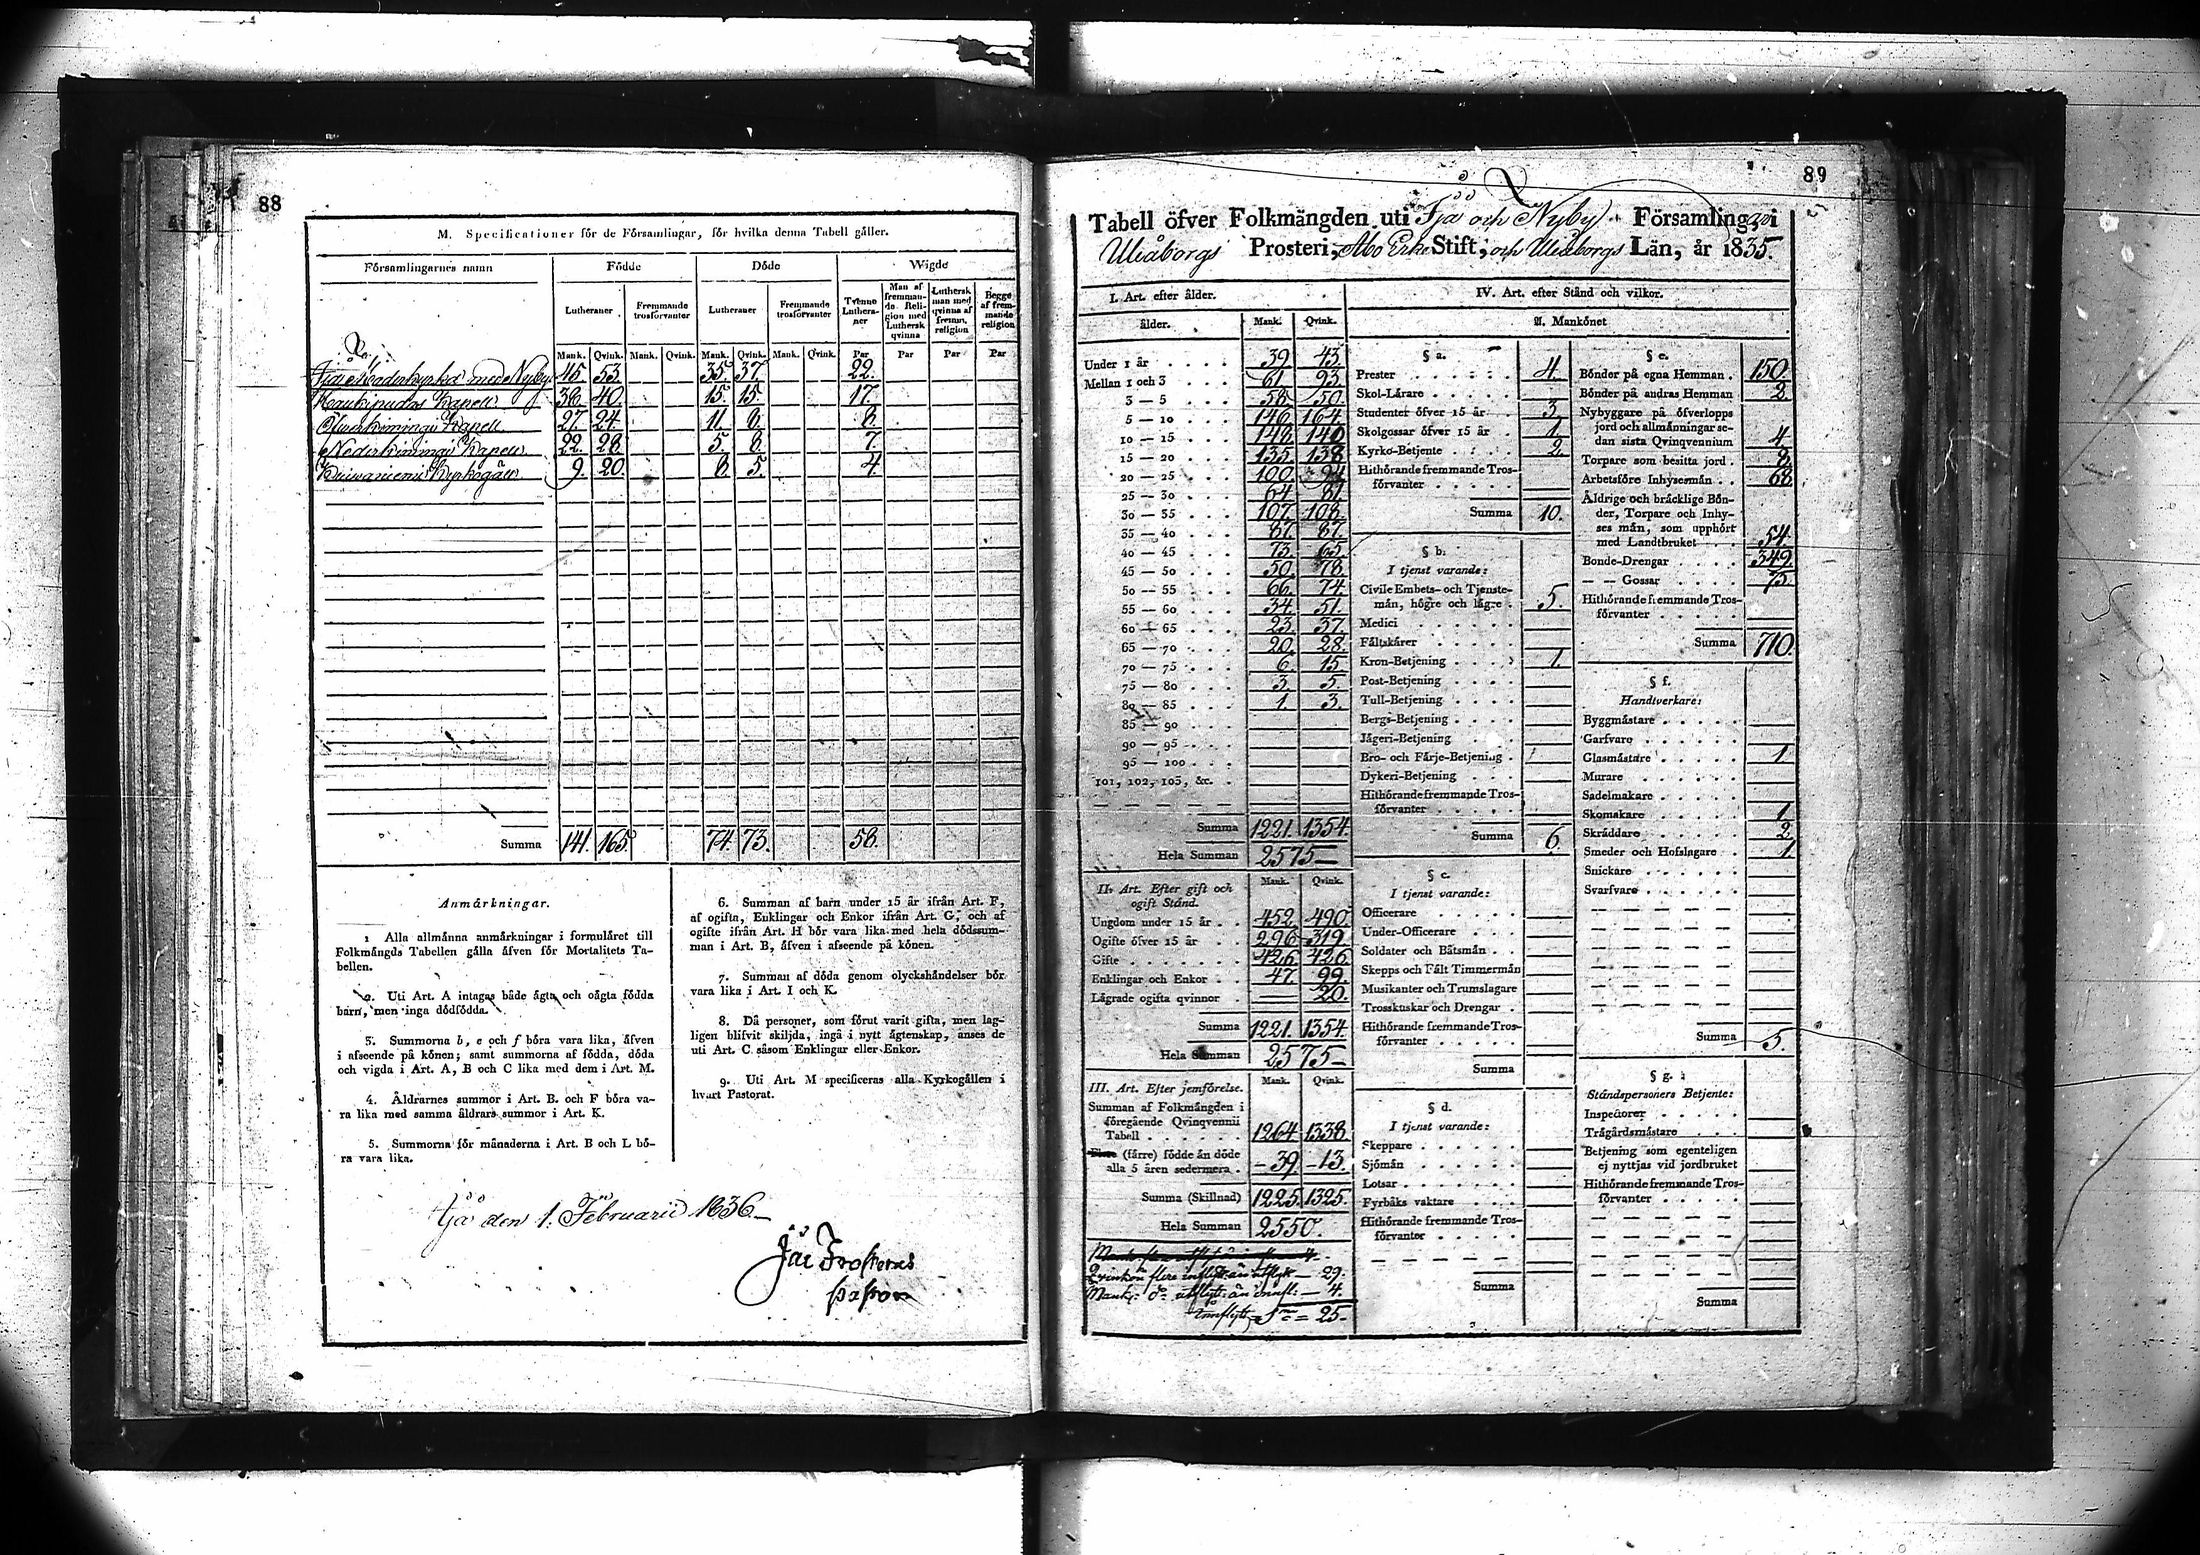 88
M. Specificationer för de Församlingar, för hvilka denna Tabell gäller.
Församlingarnes namn Födde Döde Wigde
Lutheraner Fremmande trosförvanter Lutheraner Fremmande trosförvanter Tvenne Lutheraner Man af fremmande Religion med Luthersk qvinna Luthersk man med qvinna af fremm. religion Begge af fremmande religion
Mank. Qvink. Mank. Qvink. Mank. Qvink. Mank. Qvink. Par Par Par Par
Ijå Moderkyrka med Nyby 45 53. 35. 37. 22.
Haukipudas Kapell 36 40. 15. 15. 17.
Öfverkimingi Kapell 27. 24. 11. 8. 8.
Nederkimingi Kapell 22. 28. 5. 8. 7.
Kuivaniemi Kyrkogäll 9. 20. 8. 5. 4
Summa 141. 165. 74. 73. 58.
Anmärkningar.
1 Alla allmänna anmärkningar i formuläret till
Folkmängds Tabellen gälla äfven för Mortalitets Ta-
bellen.
2. Uti Art. A intagas både ägta och oägta födda
barn, men inga dödfödda.
3. Summorna b, e och f böra vara lika, äfven
i afseende på könen; samt summorna af födda, döda
och vigda i Art. A, B och C lika med dem i Art. M.
4. Åldrarnes summor i Art. B. och F böra va-
ra lika med samma åldrars summor i Art. K.
5. Summorna för månaderna i Art. B och L bö-
ra vara lika.
6. Summan af barn under 15 år ifrån Art. F,
af ogifta, Enklingar och Enkor ifrån Art. G, och af
ogifte ifrån Art. H bör vara lika med hela dödssum-
man i Art. B, äfven i afseende på könen.
7. Summan af döda genom olyckshändelser bör
vara lika i Art. I och K.
8. Då personer, som förut varit gifta, men lag-
ligen blifvit skiljda, ingå i nytt ägtenskap, anses de
uti Art. C. såsom Enklingar eller Enkor.
9. Uti Art. M specificeras alla Kyrkogällen i
hvart Pastorat.
Ijå den 1. Februarii 1836.
89
Tabell öfver Folkmängden uti Ijå och Nyby Församlingar i
Uleåborgs Prosteri, Åbo Erke Stift, och Uleåborgs Län, år 1835.
I. Art. efter ålder.
ålder. Mank. Qvink.
Under 1 år 39. 43.
Mellan 1 och 3 61. 93.
3 — 5 58. 50.
5 — 10 146. 164.
10 — 15 148. 140
15 — 20 135. 138.
20 — 25 100. 94.
25 — 30 64. 81.
30 — 35 107. 108.
35 — 40 87. 87.
40 — 45 73. 65.
45 — 50 50. 78.
50 — 55 66. 74.
55 — 60 34. 51.
60 — 65 23. 37.
65 — 70 20. 28.
70 — 75 6. 15.
75 — 80 3. 5.
80 — 85 1. 3.
85 — 90
90 — 95
95 — 100
101, 102, 103, &c.
Summa 1221. 1354.
Hela Summan 2575—
II. Art. Efter gift och ogift Stånd. Mank. Qvink.
Ungdom under 15 år 452. 490.
Ogifte öfver 15 år 296. 319.
Gifte 426. 426.
Enklingar och Enkor 47. 99.
Lägrade ogifta qvinnor — 20.
Summa 1221. 1354.
Hela Summan 2575—
III. Art. Efter jemförelse. Mank. Qvink.
Summan af Folkmängden i
föregående Qvinqvennii
Tabell 1264. 1338.
(färre) födde än döde
alla 5 åren sedermera — 39. — 13.
Summa (Skillnad) 1225. 1325.
Hela Summan 2550.
Qvinkön flere inflytt. än utflytt — 29.
Mank: d:o utflytt: än innfl: — 4.
= 25—
IV. Art. efter Stånd och vilkor.
A. Mankönet
§ a.
Prester 4.
Skol-Lärare
Studenter öfver 15 år 3.
Skolgossar öfver 15 år 1.
Kyrko-Betjente 2.
Hithörande fremmande Tros-
förvanter
Summa 10.
§ b.
I tjenst varande:
Civile Embets- och Tjenste-
män, högre och lägre 5.
Medici
Fältskärer
Kron-Betjening 1.
Post-Betjening
Tull-Betjening
Bergs-Betjening
Jägeri-Betjening
Bro- och Färje-Betjening
Dykeri-Betjening
Hithörande fremmande Tros-
förvanter
Summa 6.
§ c.
I tjenst varande:
Officerare
Under-Officerare
Soldater och Båtsmän
Skepps och Fält Timmermän
Musikanter och Trumslagare
Trosskuskar och Drengar
Hithörande fremmande Tros-
förvanter
Summa
§ d.
I tjenst varande:
Skeppare
Sjömän
Lotsar
Fyrbåks vaktare
Hithörande fremmande Tros-
förvanter
Summa
§ e.
Bönder på egna Hemman 150.
Bönder på andras Hemman 2.
Nybyggare på öfverlopps
jord och allmänningar se-
dan sista Qvinqvennium 4.
Torpare som besitta jord
Arbetsföre Inhysesmän 68.
Äldrige och bräcklige Bön-
der, Torpare och Inhy-
ses män, som upphört
med Landtbruket 54.
Bonde-Drengar 349.
— — Gossar 75.
Hithörande fremmande Tros-
förvanter
Summa 710.
§ f.
Handtverkare:
Byggmästare
Garfvare
Glasmästare 1
Murare
Sadelmakare
Skomakare 1.
Skräddare 2.
Smeder och Hofslagare 1.
Snickare
Svarfvare
Summa 5.
§ g.
Ståndspersoners Betjente:
Inspectorer
Trägårdsmästare
Betjening som egenteligen
ej nyttjas vid jordbruket
Hithörande fremmande Tros-
förvanter
Summa